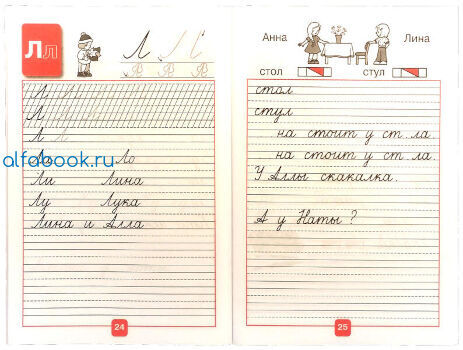 Лл
Л Л Л
Л Л Л
Л Л
Ла Ло
Ли Лина
Лу Лука
Лина и Алла
24
alfabook.ru
Анна Лина
стол стул
стол
стул
на стоит у ст.ла.
на стоит у ст.ла.
У Аллы скакалка.
А у Наты?
25